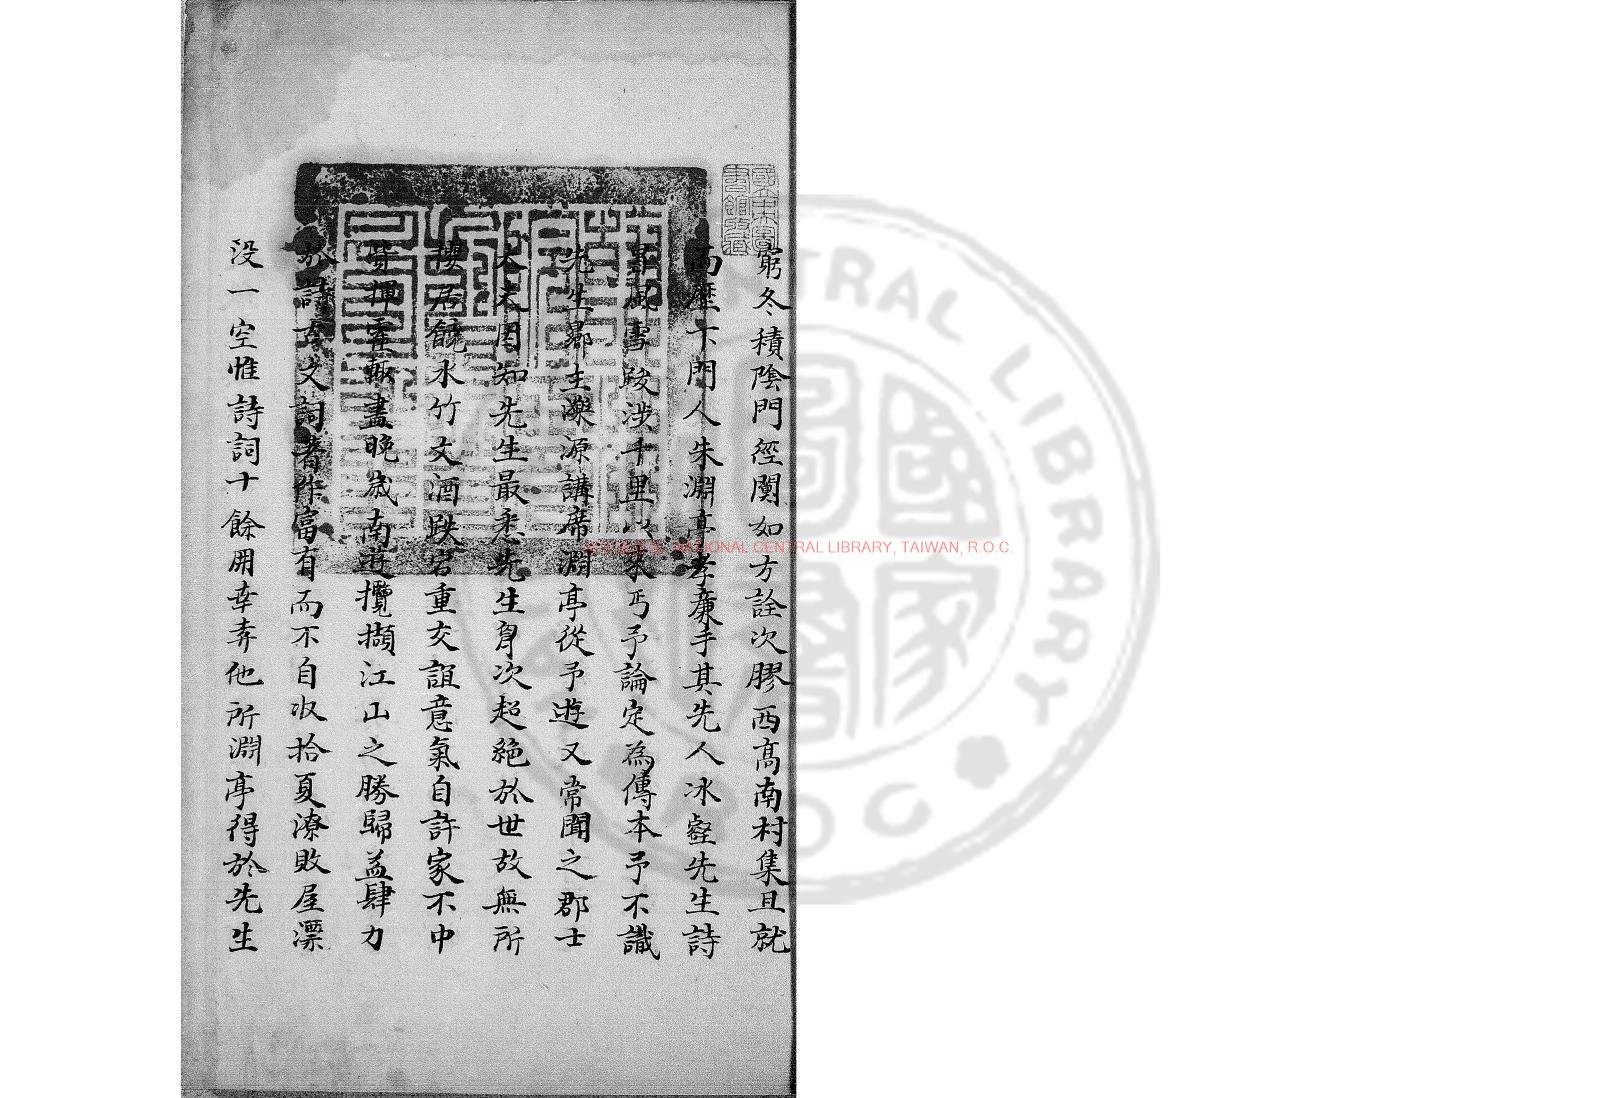 窮冬積陰門徑闃如方詮次膠西髙南村集且就
而歷下門人朱淵亭孝廉手其先人冰壑先生詩
冒風雪跋涉千里以來丐予論定為傳本予不識
先生鄉主濼源講席淵亭從予遊又常聞之郡士
大夫因知先生最悉先生身次超絶於世故無所
攖居饒水竹文酒跌宕重交誼意氣自許家不中
貲揮霍輒盡晚歲南遊攬擷江山之勝歸益肆力
於詩古文詞著作富有而不自收拾夏潦敗屋漂
没一空惟詩詞十餘用幸弆他所淵亭得於先生
NATIONAL CENTRAL LIBRARY, TAIWAN, R.O.C.